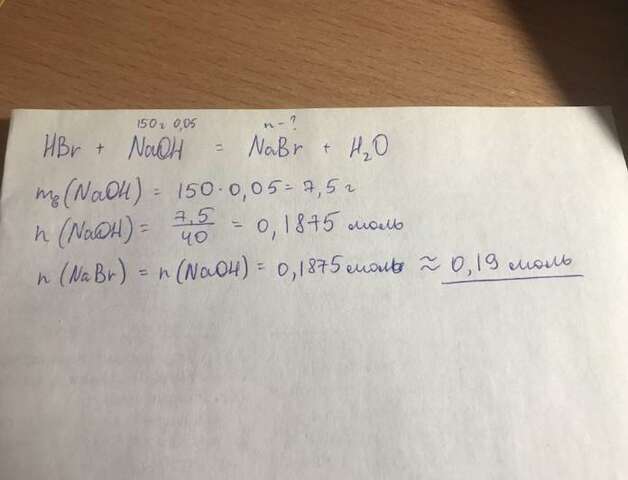 150 г 0,05 n - ?
HBr + NaOH = NaBr + H₂O
mв (NaOH) = 150 · 0,05 = 7,5 г
n (NaOH) = 7,5/40 = 0,1875 моль
n (NaBr) = n (NaOH) = 0,1875 моль ≈ 0,19 моль